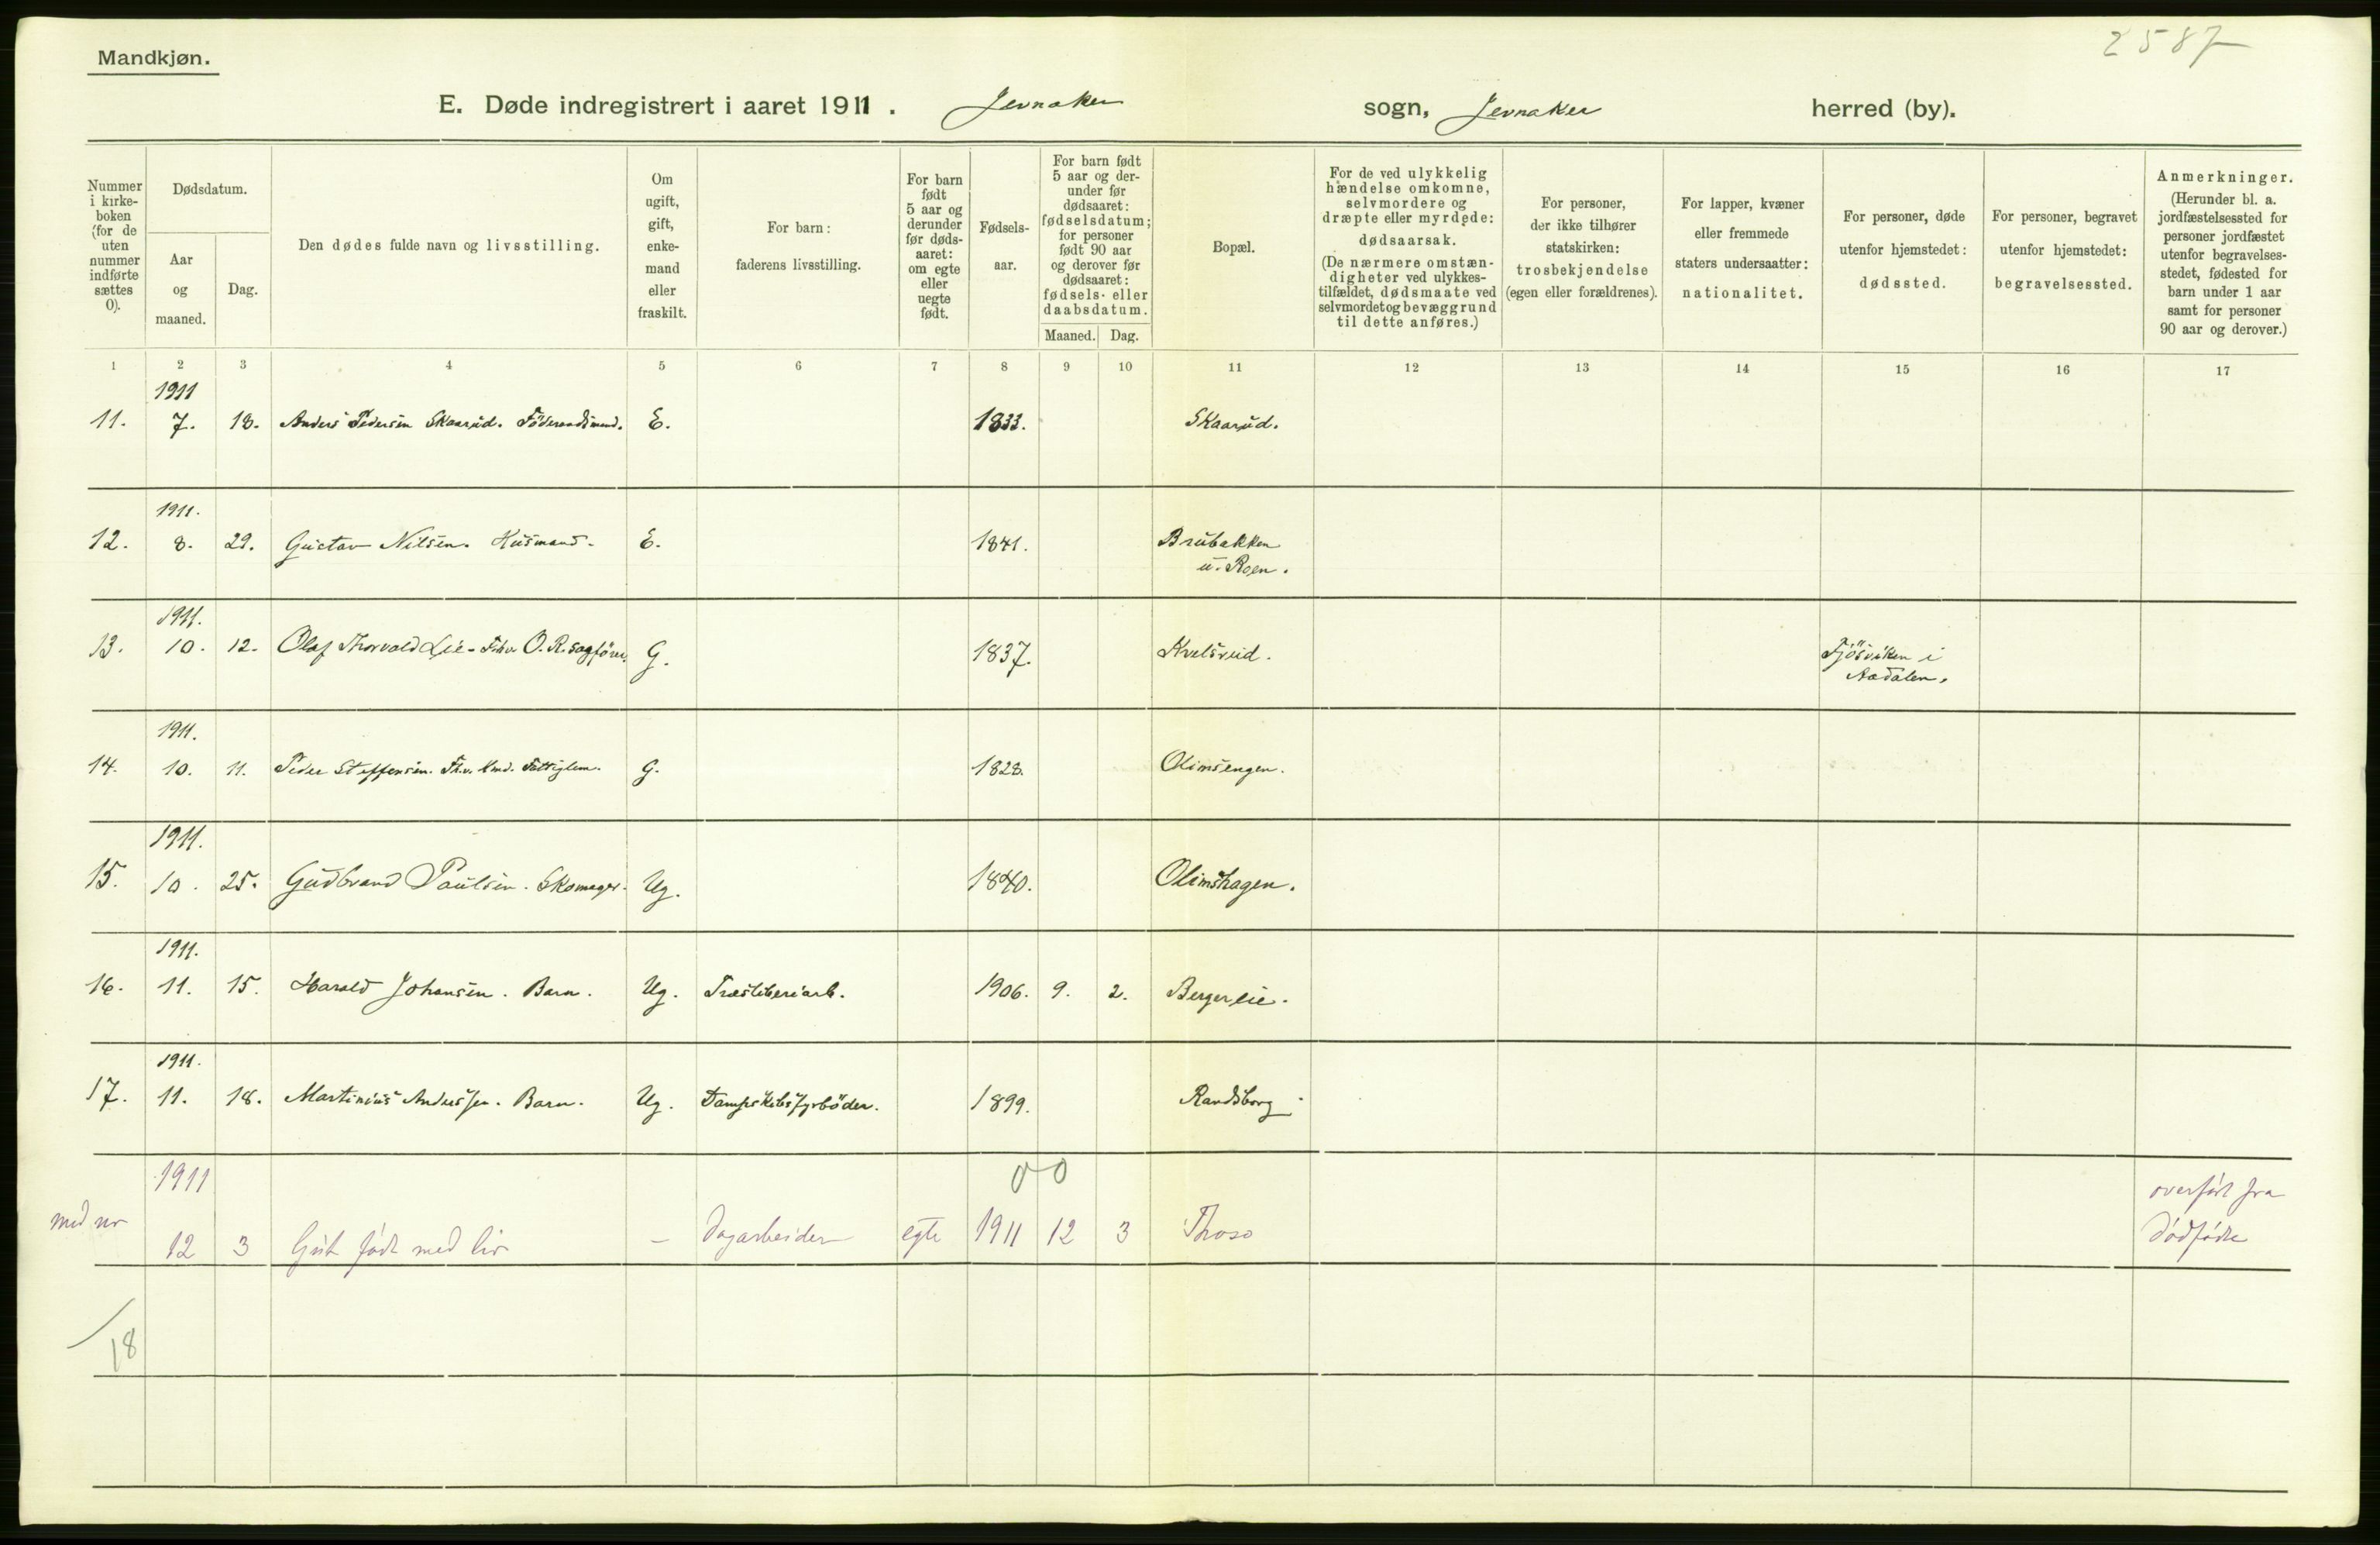 2587
Mandkjøn.
E. Døde indregistrert i aaret 1911. Jevnaker sogn, Jevnaker herred (by).
Nummer i kirke-boken (for de uten nummer indførte sættes 0).
Dødsdatum.
Aar og maaned.
Dag.
Den dødes fulde navn og livsstilling.
Om ugift, gift, enke-mand eller fraskilt.
For barn: faderens livsstilling.
For barn født 5 aar og derunder før døds-aaret: om egte eller uegte født.
Fødsels-aar.
For barn født 5 aar og der-under før dødsaaret: fødselsdatum; for personer født 90 aar og derover før dødsaaret: fødsels- eller daabsdatum.
Maaned. Dag.
Bopæl.
For de ved ulykkelig hændelse omkomne, selvmordere og dræpte eller myrdede: dødsaarsak. (De nærmere omstæn-digheter ved ulykkes-tilfældet, dødsmaate ved selvmordet og bevæggrund til dette anføres.)
For personer, der ikke tilhører statskirken: trosbekjendelse (egen eller forældrenes).
For lapper, kvæner eller fremmede staters undersaatter: nationalitet.
For personer, døde utenfor hjemstedet: dødssted.
For personer, begravet utenfor hjemstedet: begravelsessted.
Anmerkninger. (Herunder bl. a. jordfæstelsessted for personer jordfæstet utenfor begravelses-stedet, fødested for barn under 1 aar samt for personer 90 aar og derover.)
1 2 3 4 5 6 7 8 9 10 11 12 13 14 15 16 17
1911
11. 7. 18. Anders Pedersen Skaarud. Föderaadsmand. E. 1833. Skaarud.
1911.
12. 8. 29. Gustav Nilsen. Husmand. E. 1841. Brubakken
u. Roen.
1911.
13. 10. 12. Olaf Thorvald Lie - Fhv. O. R. sagförer. G. 1837. Kvelsrud. Tjösviken i
Aadalen.
1911.
14. 10. 11. Peder Steffensen. Fh.v. Hmd. Fattiglem. G. 1828. Olimsengen.
1911.
15. 10. 25. Gudbrand Paulsen. Skomager. Ug. 1840. Olimshagen.
1911.
16. 11. 15. Harald Johansen. Barn. Ug. Træsliberiarb. 1906. 9. 2. Bergereie.
1911.
17. 11. 18. Martinius Anderssen. Barn. Ug. Dampskibsfyrböder. 1899. Randsborg.
1911 00 overført fra
12 3 Gut født med liv - Dagarbeider egte 1911 12 3 Thoso Dødfødte
18